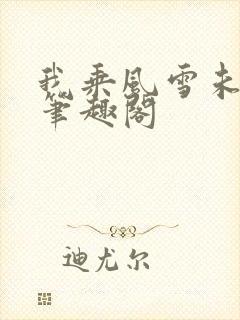 我乘风雪未
笔趣阁
迪尤尔